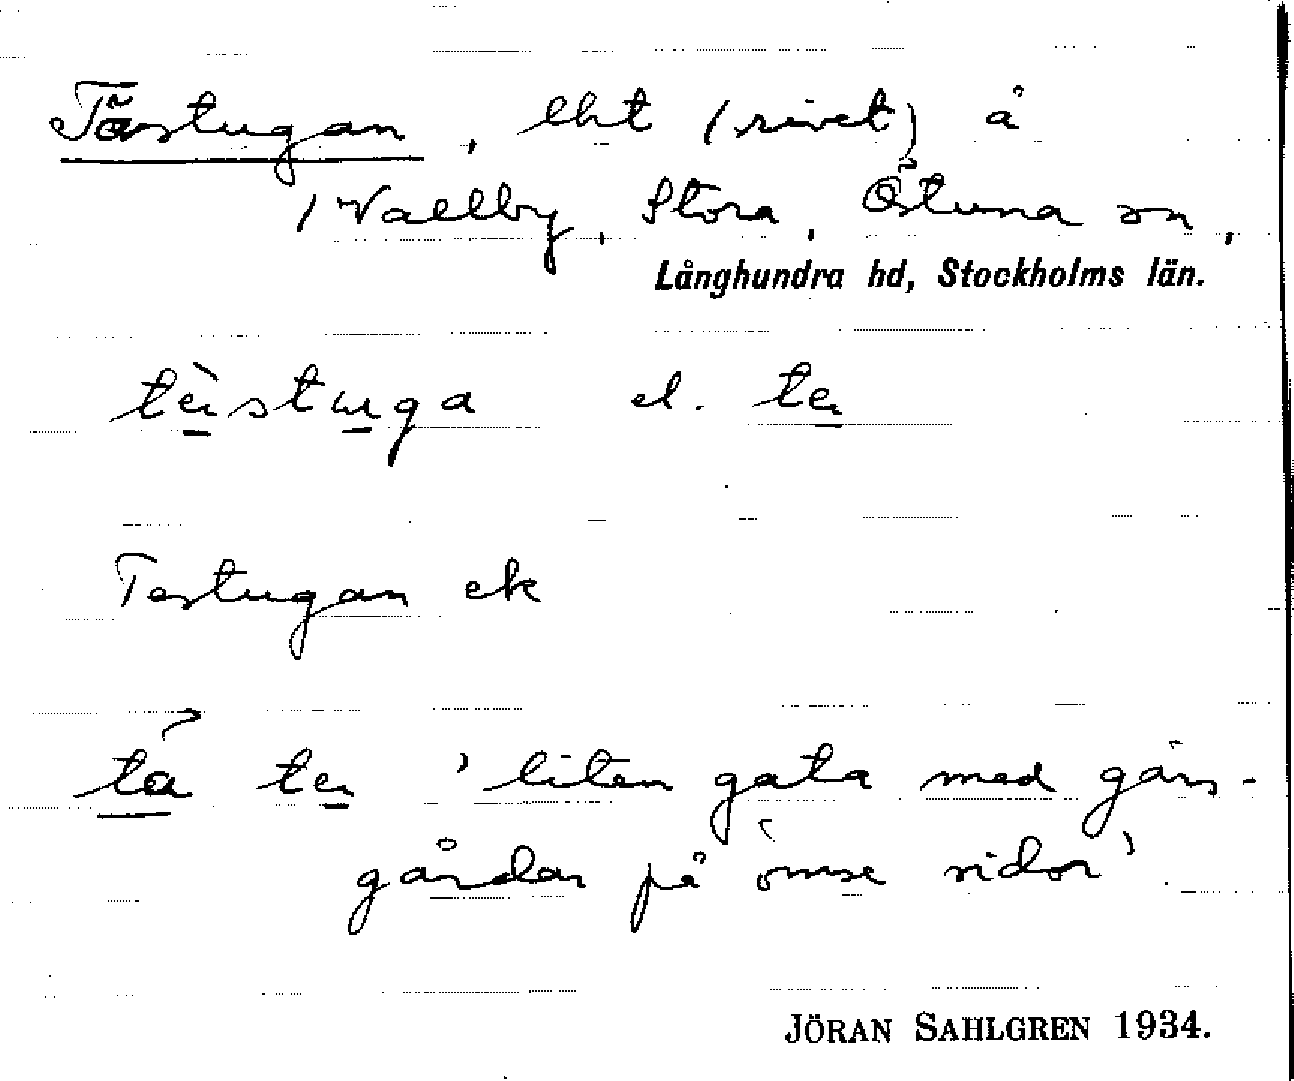 Tästugan, lht (rivet) å
/Vallby, Stora, Östuna sn,
Långhundra hd, Stockholms län.
tèstuga el. te
Testugan ek
tä te 'liten gata med gärs-
gårdar på ömse sidor'
JÖRAN SAHLGREN 1934.